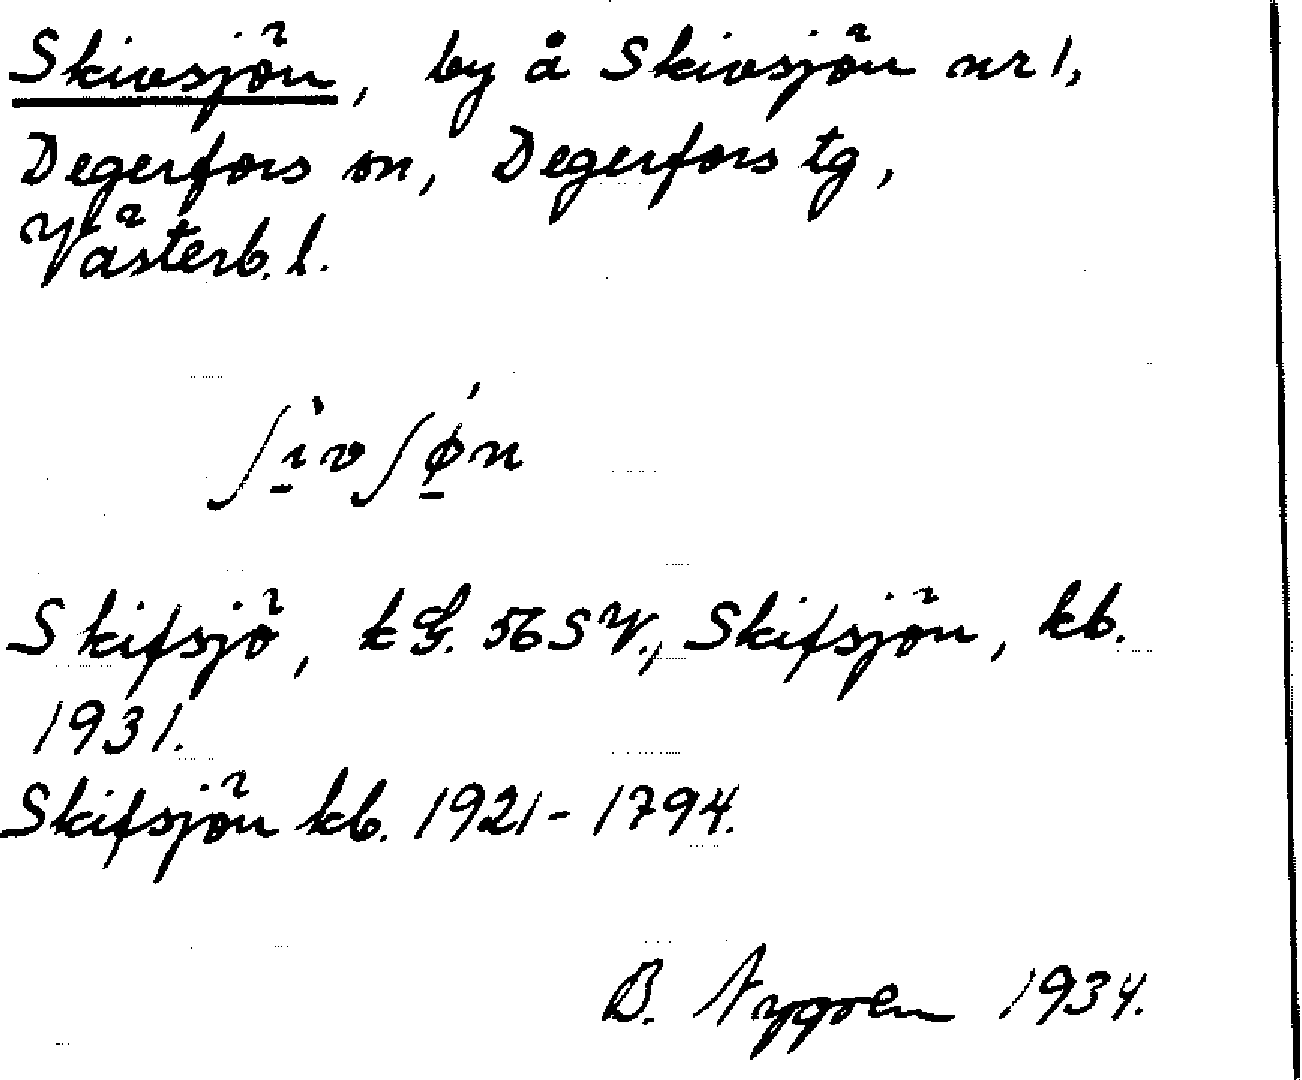 Skivsjön, by å Skivsjön nr 1,
Degerfors sn, Degerfors tg,
Västerb. l.
ʃì̠vʃǿ̠n
Skifsjö, k G. 56 SV., Skifsjön, kb.
1931.
Skifsjön kb. 1921-1794.
B. Nygren 1934.